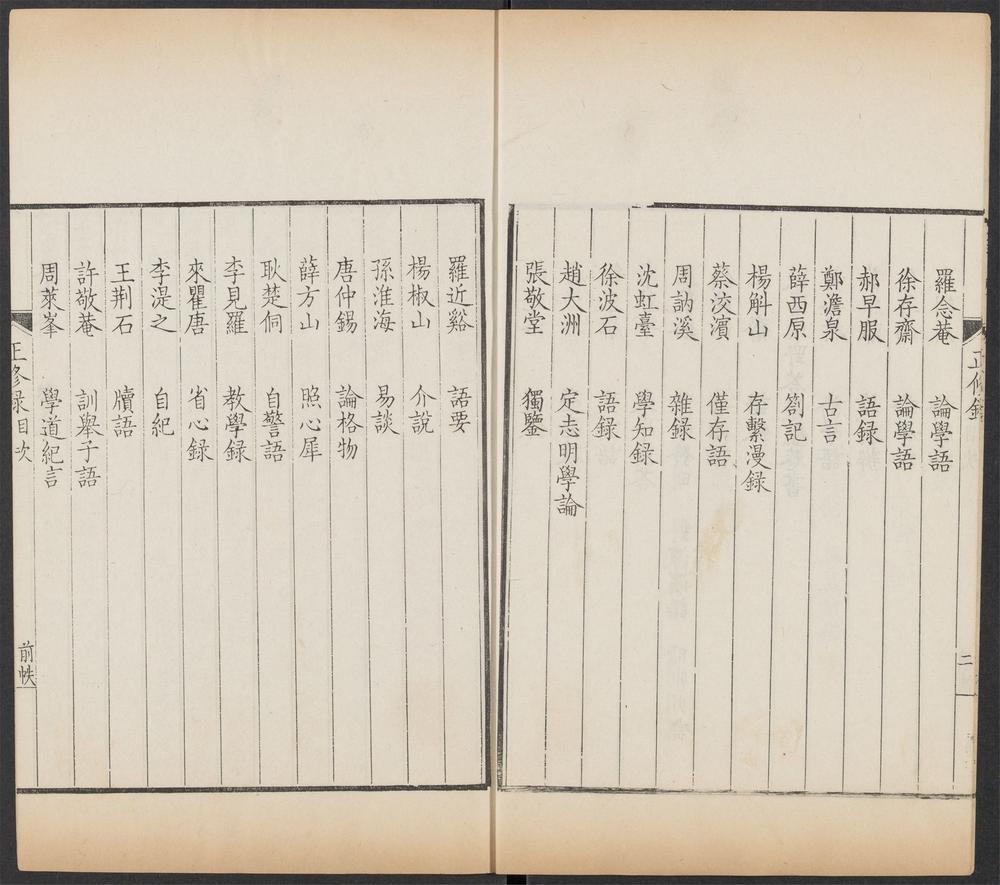 羅念菴 論學語
徐存齋 論學語
郝早服 語録
鄭澹泉 古言
薛西原 劄記
楊斛山 存繫漫録
蔡洨濱 僅存語
周訥溪 雜録
沈虹臺 學知録
徐波石 語録
趙大洲 定志明學論
張敬堂 獨鑒
二
羅近谿 語要
楊椒山 介說
孫淮海 易談
唐仲錫 論格物
薛方山 照心犀
耿楚侗 自警語
李見羅 教學録
來瞿唐 省心録
李湜之 自紀
王荆石 牘語
許敬菴 訓舉子語
周萊峯 學道紀言
正修录目次 前帙